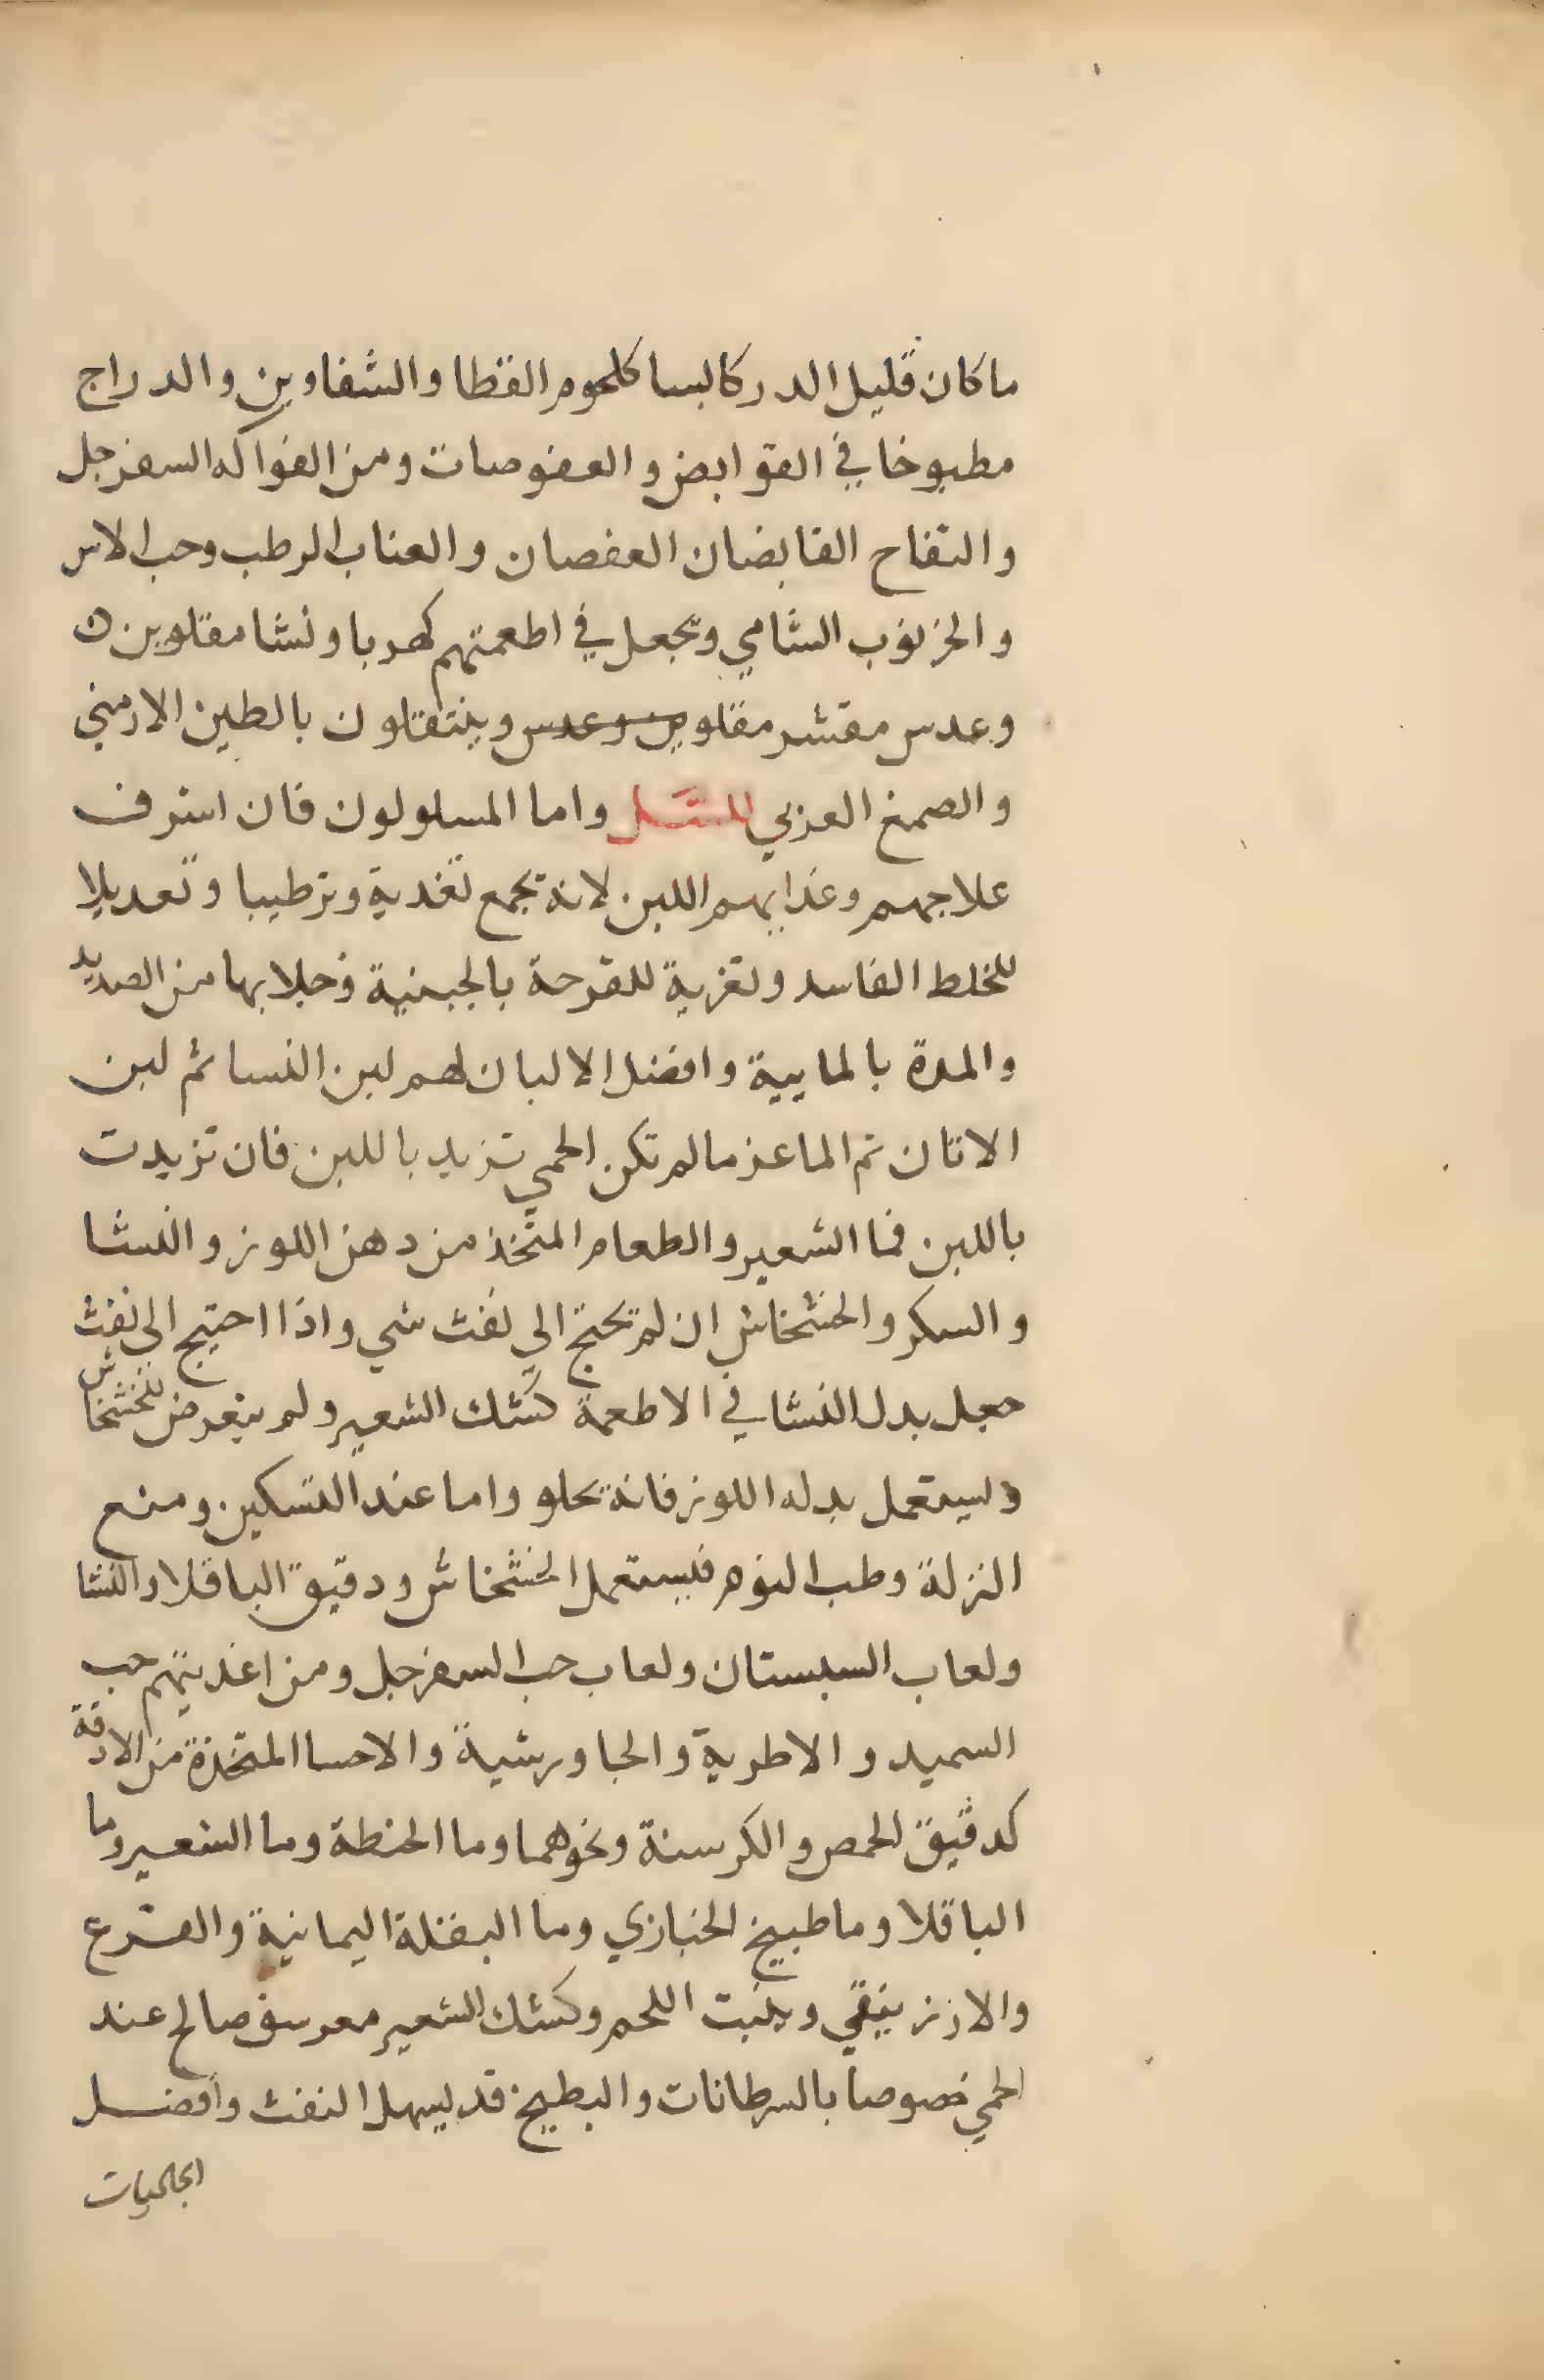 ما كان قليل الدر كالبسا كلحوم القطا والشفاوين والدراج
مطبوخا في القوابض والعفوصات ومن الفواكه السفرجل
والتفاح القابضان العفصان والعناب الرطب وحب الاس
والخرنوب الشامي ويجعل في اطعمتهم كهربا ونشا مقلوين
وعدس مقشر مقلوين وعدس وينتقلون بالطين الارمني
والصمغ العربي للسل واما المسلولون فان اشرف
علاجهم وغذايهم اللبن لانه يجمع تغدية وترطيبا وتعديلا
للخلط الفاسد وتغرية للقرحة بالجبنية وجلا بها من الصديد
والمدة بالمايية وافضل الالبان لهم لبن النسا ثم لبن
الاتان ثم الماعز ما لم تكن الحمي تزيد باللبن فان تزيدت
باللبن فما الشعير والطعام المتخذ من دهن اللوز والنشا
والسكر والخشخاش ان لم تحتج الي نفث شي واذا احتيج الي نفث
جعل بدل النشا في الاطعمة كشك الشعير ولم يتعرض للخشخاش
وليستعمل بدله اللوز فانه يجلو واما عند التسكين ومنع
النزلة وطب النوم فليستعمل الخشخاش ودقيق الباقلا والنشا
ولعاب السبستان ولعاب حب السفرجل ومن اغذيتهم حب
السميد والاطرية والجاورشية والاحسا المتخذة من الادقة
كدقيق الحمص والكرسنة ونحوهما وما الحنطة وما الشعير وما
الباقلا وما طبيخ الخبازي وما البقلة اليمانية والقرع
والارز ينقي وينبت اللحم وكشك الشعير معروف صالح عند
الحمي خصوصا بالسرطانات والبطيخ قد يسهل النفث وافضل